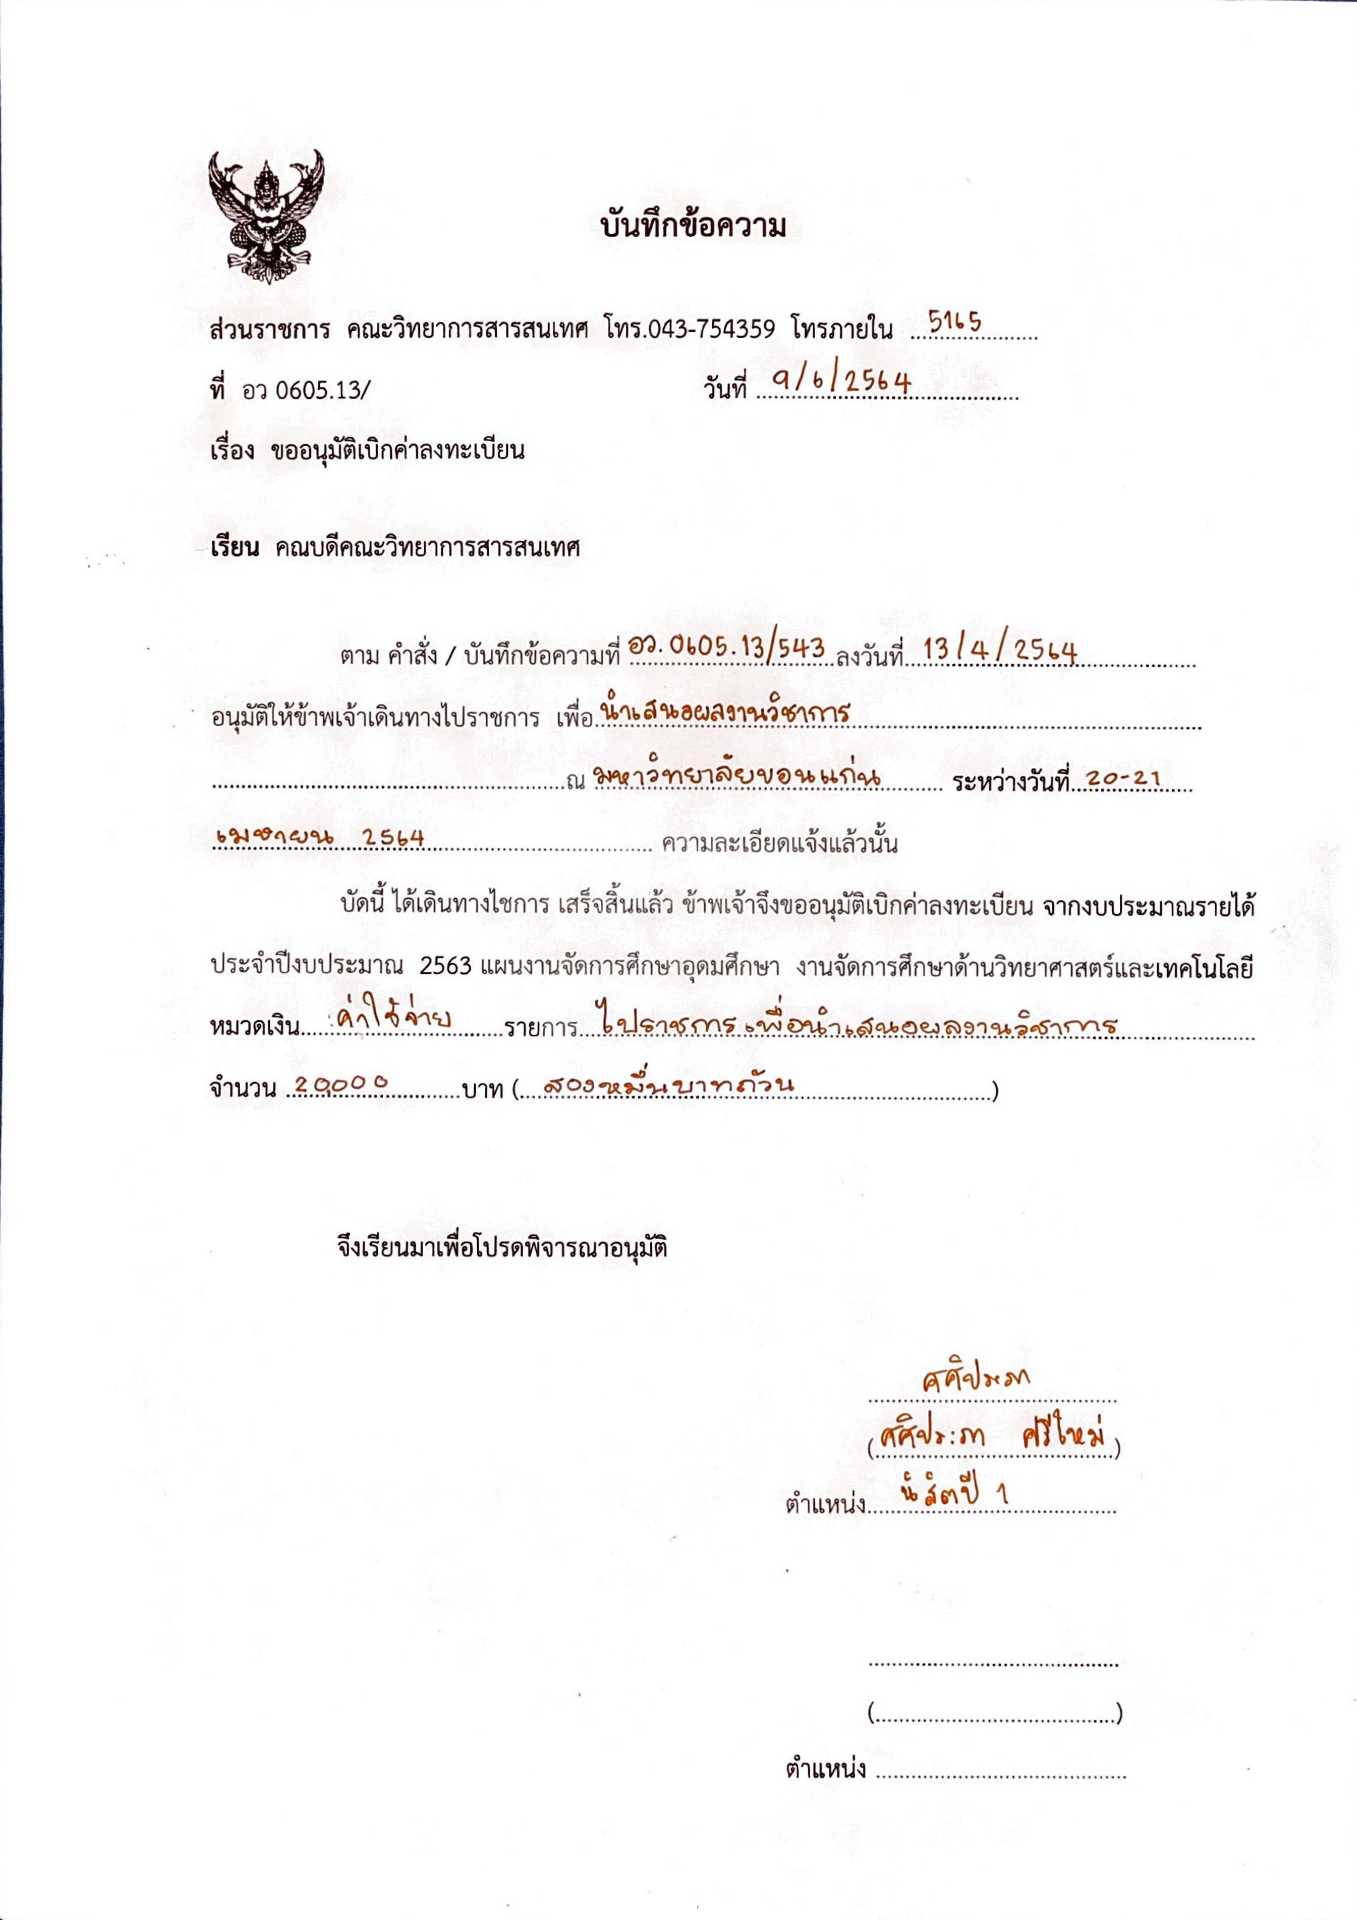 บันทึกข้อความ
ส่วนราชการ คณะวิทยาการสารสนเทศ โทร.043-754359 โทรภายใน 5165
ที่ อว 0605.13/ วันที่ 9/6/2564
เรื่อง ขออนุมัติเบิกค่าลงทะเบียน
เรียน คณบดีคณะวิทยาการสารสนเทศ
ตาม คำสั่ง / บันทึกข้อความที่ อว.0605.13/543 ลงวันที่ 13/4/2564
อนุมัติให้ข้าพเจ้าเดินทางไปราชการ เพื่อ นำเสนอผลงานวิชาการ
ณ มหาวิทยาลัยขอนแก่น ระหว่างวันที่ 20-21
เมษายน 2564 ความละเอียดแจ้งแล้วนั้น
บัดนี้ ได้เดินทางไชการ เสร็จสิ้นแล้ว ข้าพเจ้าจึงขออนุมัติเบิกค่าลงทะเบียน จากงบประมาณรายได้
ประจำปีงบประมาณ 2563 แผนงานจัดการศึกษาอุดมศึกษา งานจัดการศึกษาด้านวิทยาศาสตร์และเทคโนโลยี
หมวดเงิน ค่าใช้จ่าย รายการ ไปราชการเพื่อนำเสนอผลงานวิชาการ
จำนวน 20,000 บาท ( สองหมื่นบาทถ้วน )
จึงเรียนมาเพื่อโปรดพิจารณาอนุมัติ
ศศิประภา
( ศศิประภา ศรีใหม่ )
ตำแหน่ง นิสิตปี 1
( )
ตำแหน่ง